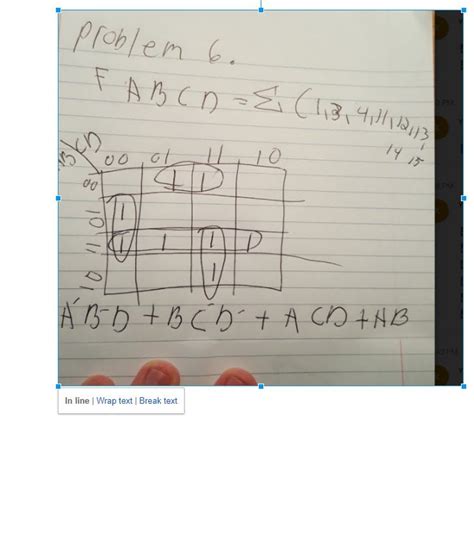 Problem 6.
F ABCD = Σ (1,3,4,11,12,13,
14 15
CD
00 01 11 10
00
1 1
01
1
11
1 1 1 1
10
1
A'B'D + BC'D' + ACD + AB
In line | Wrap text | Break text